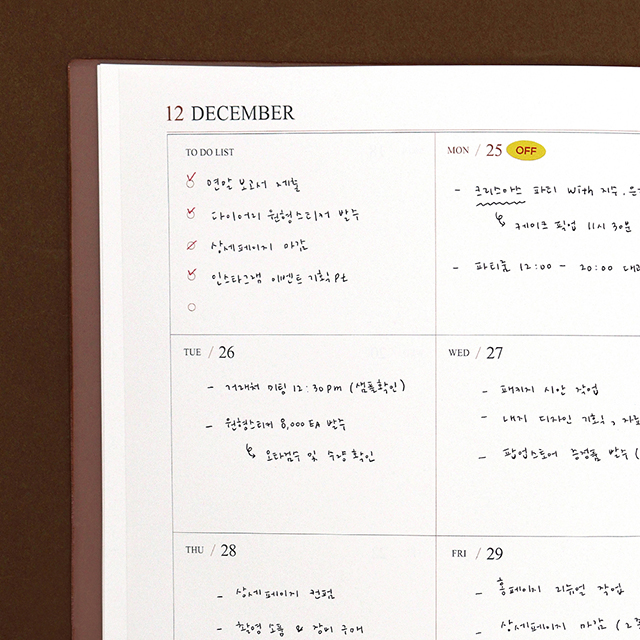 12 DECEMBER
TO DO LIST
연말 보고서 제출
다이어리 원형스티커 발주
상세페이지 마감
인스타그램 이벤트 기획 pt
MON / 25 OFF
- 크리스마스 파티 with 지수.
케이크 픽업 11시 30분
- 파티룸 12:00 - 20:00
TUE / 26
- 거래처 미팅 12:30pm (샘플확인)
- 원형스티커 8,000 EA 발주
오타검수 및 수량 확인
WED / 27
- 패키지 시안 작업
- 내지 디자인 기획,
- 팝업스토어 증정품 발주 (
THU / 28
- 상세페이지 컨펌
- 촬영 소품 & 장비 구매
FRI / 29
- 홈페이지 리뉴얼 작업
- 상세페이지 마감 (